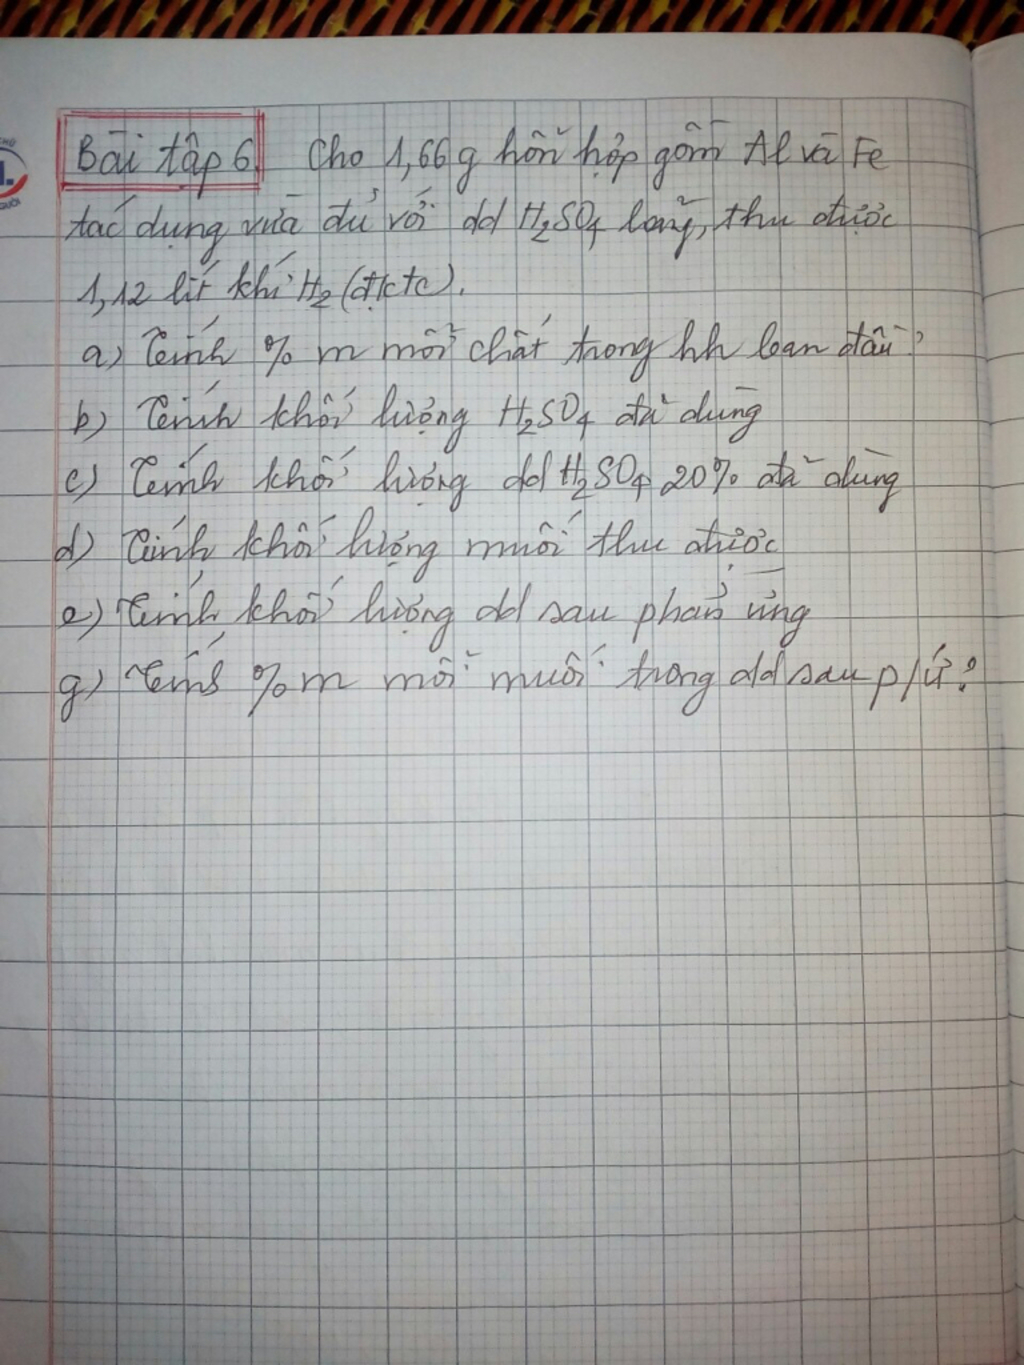 Bài tập 6. Cho 1,66g hỗn hợp gồm Al và Fe
tác dụng vừa đủ với dd H₂SO₄ loãng, thu được
1,12 lít khí H₂ (đktc).
a) Tính % m mỗi chất trong hh ban đầu?
b) Tính khối lượng H₂SO₄ đã dùng
c) Tính khối lượng dd H₂SO₄ 20% đã dùng
d) Tính khối lượng muối thu được
e) Tính khối lượng dd sau phản ứng
g) Tính %m mỗi muối trong dd sau p/ứ?